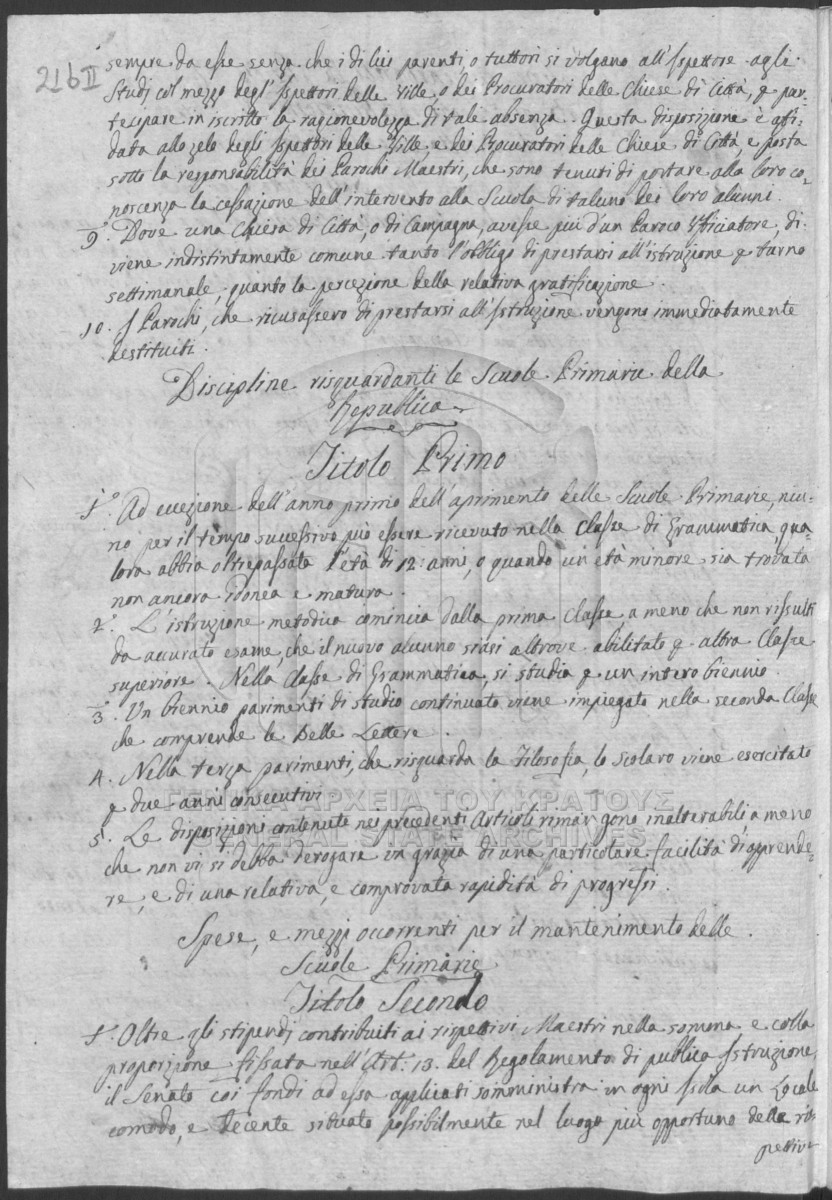 216 II
sempre da esse senza che i di lui parenti, o tuttori si volgano all'Ispettore agli
Studi col mezzo degl'Ispettori delle Ville, o dei Procuratori delle Chiese di Città, p par-
tecipare in iscritto la ragionevolezza di tale absenza. Questa disposizione è affi-
data allo zelo degli Ispettori delle Ville, e dei Procuratori delle Chiese di Città, e posta
sotto la responsabilità dei Parochi Maestri, che sono tenuti di portare alla loro co-
noscenza la cessazione dell'intervento alla Scuola di taluno dei loro alunni.
9°. Dove una Chiesa di Città, o di Campagna, avesse più d'un Paroco Ufficiatore, di-
viene indistintamente comune tanto l'obbligo di prestarsi all'istruzione p turno
settimanale, quanto la percezione della relativa gratificazione.
10. I Parochi, che ricusassero di prestarsi all'Istruzione vengono immediatamente
destituiti.
Discipline risguardanti le Scuole Primarie della
Repubblica
Titolo Primo
1°. Ad eccezione dell'anno primo dell'aprimento delle Scuole Primarie, niu-
no per il tempo successivo può essere ricevuto nella Classe di Grammatica, qua-
lora abbia oltrepassata l'età di 12 anni, o quando un età minore sia trovata
non ancora idonea e matura.
2°. L'istruzione metodica comincia dalla prima Classe, a meno che non risulti
da accurato esame, che il nuovo alunno siasi altrove abilitato p altra Classe
superiore. Nella Classe di Grammatica, si studia p un intero biennio.
3°. Un biennio parimenti di studio continuato viene impiegato nella seconda Classe
che comprende le Belle Lettere.
4. Nella terza parimenti, che risguarda la Filosofia, lo Scolaro viene esercitato
p due anni consecutivi
ΓΕΝΙΚΑ ΑΡΧΕΙΑ ΤΟΥ ΚΡΑΤΟΥΣ
5. Le disposizioni contenute nei precedenti Articoli rimangono inalterabili, a meno
GENERAL STATE ARCHIVES
che non vi si debba derogare in grazia di una particolare facilità d'apprende-
re, e di una relativa, e comprovata rapidità di progressi.
Spese, e mezzi occorrenti per il mantenimento delle
Scuole Primarie
Titolo Secondo
1°. Oltre gli stipendi contribuiti ai rispettivi Maestri nella somma e colla
proporzione fissata nell'Art. 13. del Regolamento di pubblica Istruzione,
il Senato coi fondi ad essa applicati somministra in ogni Isola un Locale
comodo, e decente situato possibilmente nel luogo più opportuno della ris-
pettiva